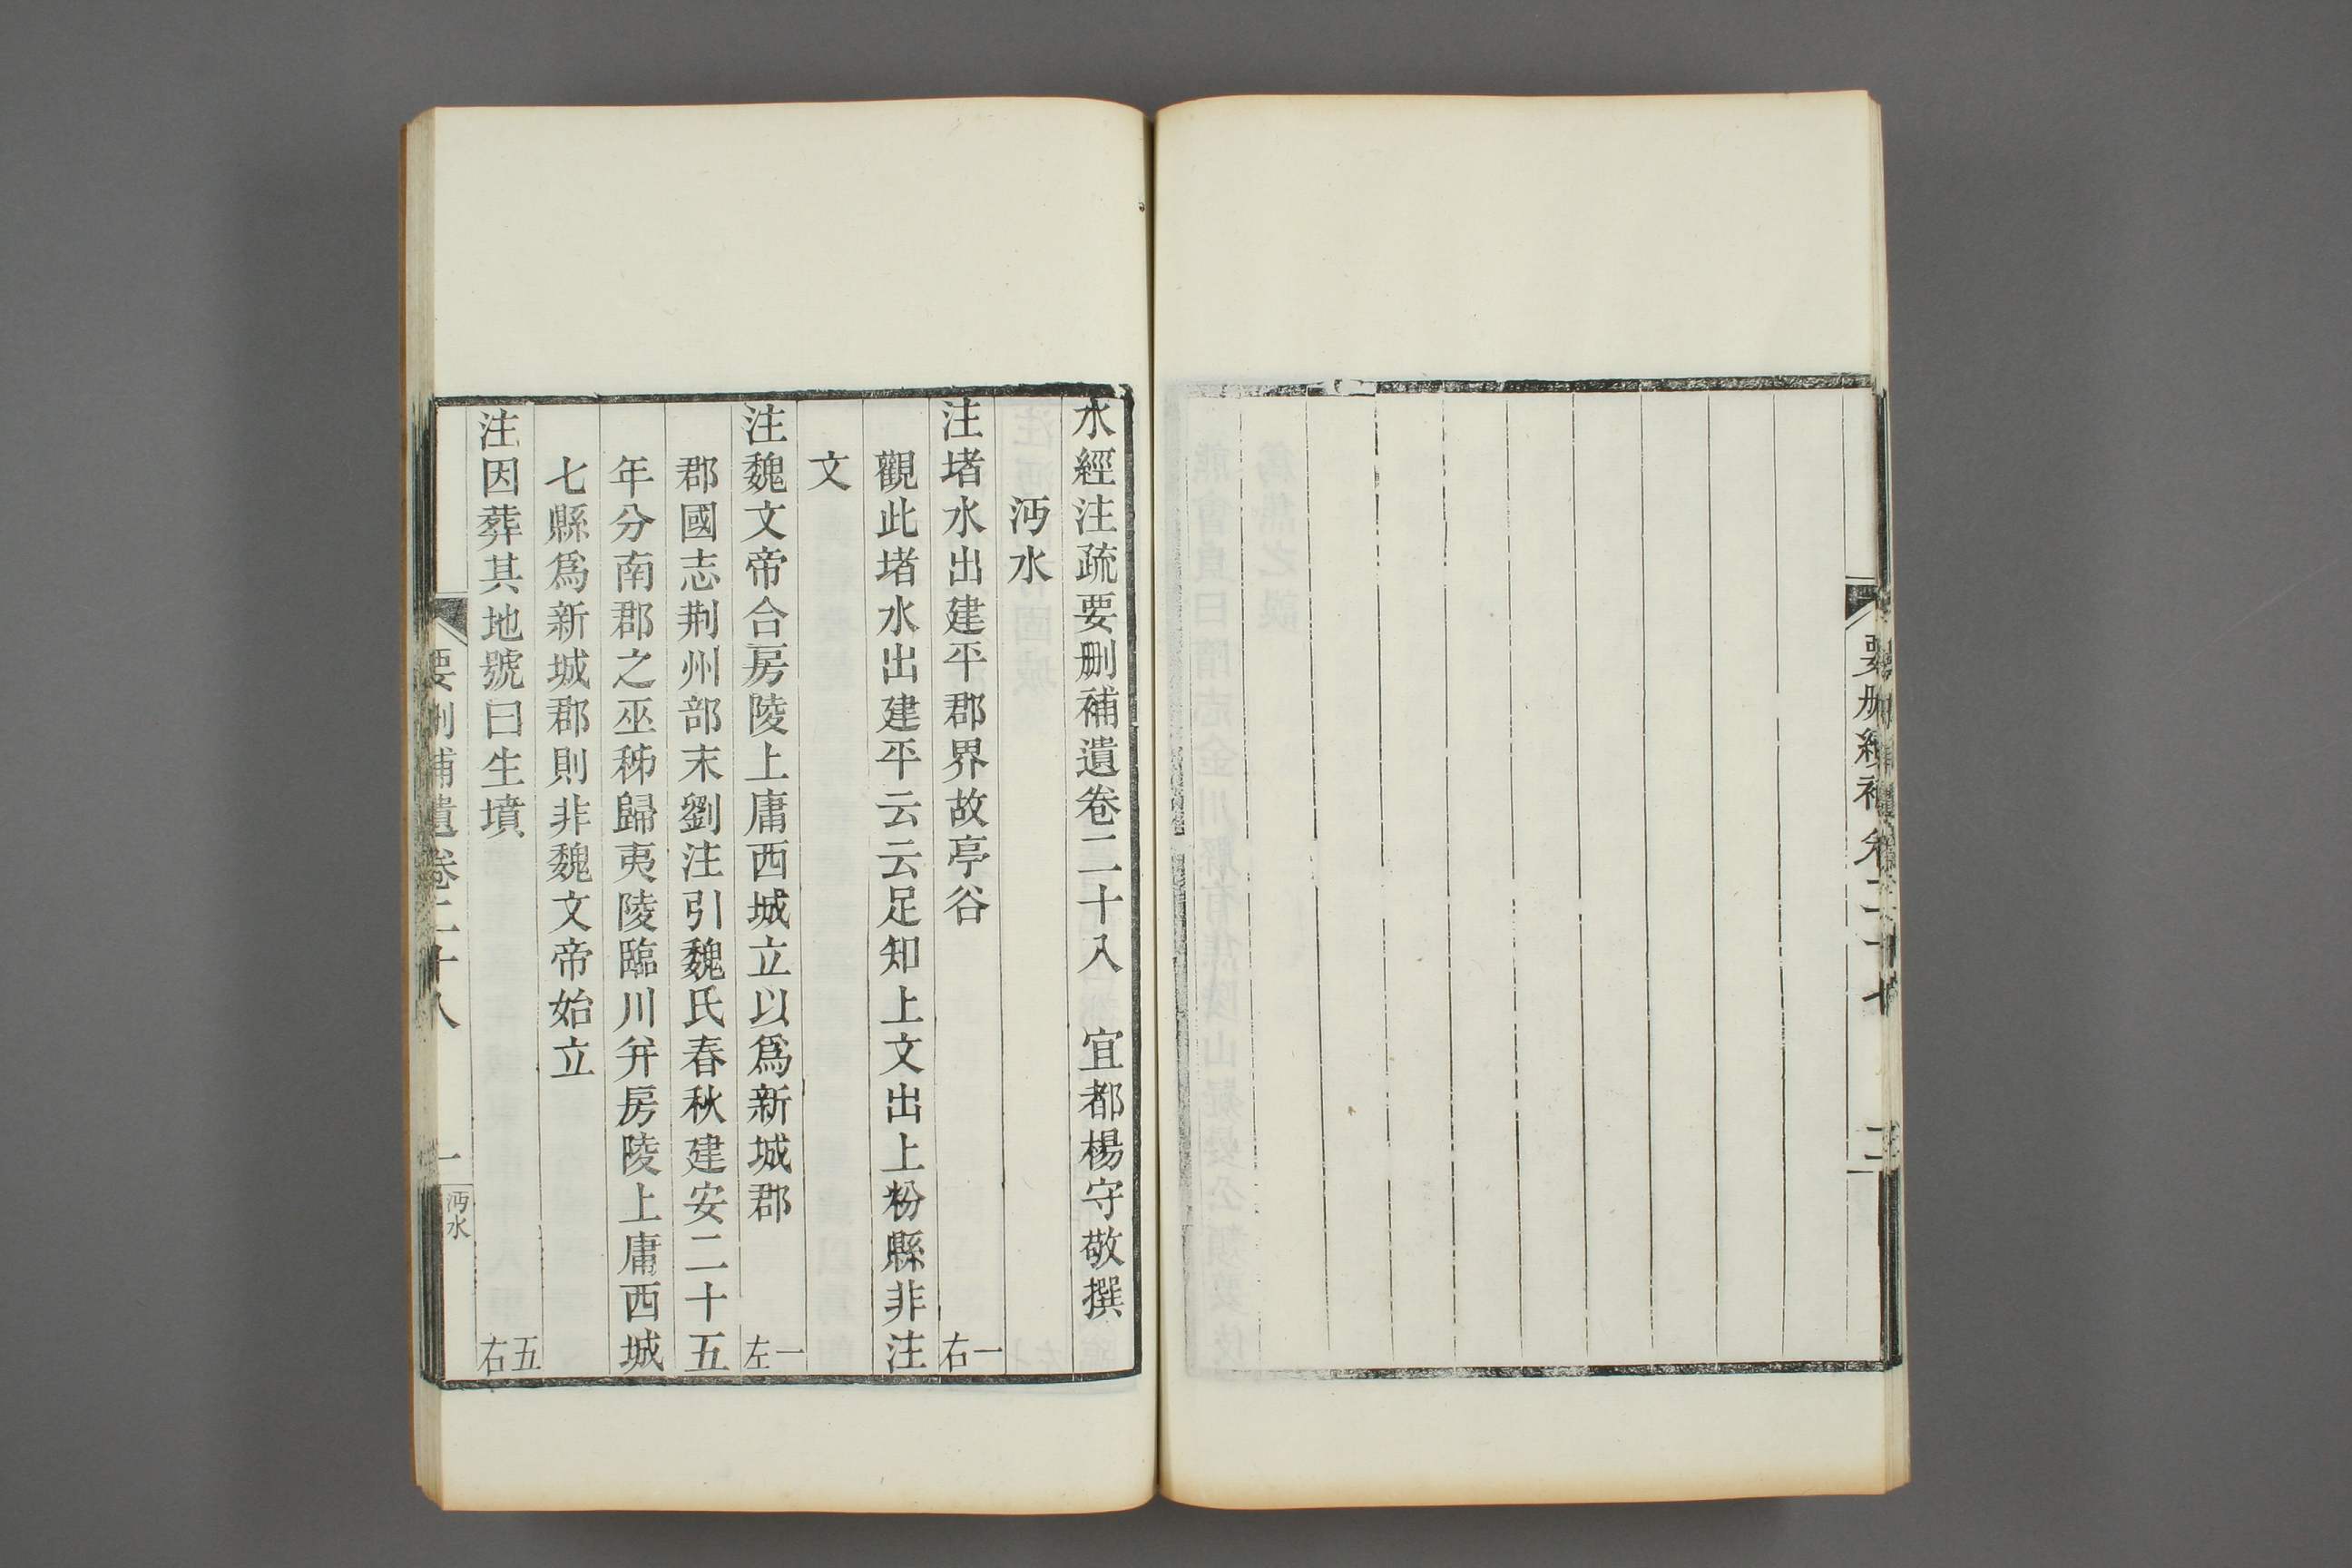 水經注疏要刪補遺卷二十八　宜都楊守敬撰
沔水
注堵水出建平郡界故亭谷　一右
觀此堵水出建平云云足知上文出上粉縣非注
文
注魏文帝合房陵上庸西城立以爲新城郡　一左
郡國志荆州部末劉注引魏氏春秋建安二十五
年分南郡之巫秭歸夷陵臨川并房陵上庸西城
七縣爲新城郡則非魏文帝始立
注因葬其地號曰生墳　五右
要刪補遺卷二十八　一　沔水